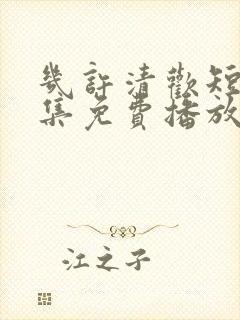 幾許清歡短
集免費播放
江之子